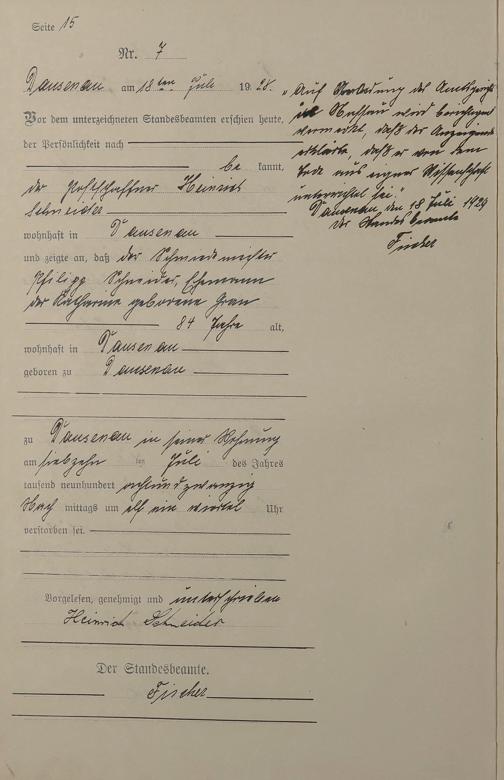 Seite 15
Nr. 7
Dausenau am 18ten Juli 1928.
Vor dem unterzeichneten Standesbeamten erschien heute,
der Persönlichkeit nach
be kannt,
der Postschaffner Heinrich
Schneider
wohnhaft in Dausenau
und zeigte an, daß der Schmiedmeister
Philipp Schneider, Ehemann
der Katharine geborene Grau
84 Jahre alt,
wohnhaft in Dausenau
geboren zu Dausenau
zu Dausenau in seiner Wohnung
am siebzehn ten Juli des Jahres
tausend neunhundert achtundzwanzig
Nach mittags um elf ein viertel Uhr
verstorben sei.
Vorgelesen, genehmigt und unterschrieben
Heinrich Schneider
Der Standesbeamte.
Fischer
„Auf des Amtsgerichts
wird berichtigend
vermerkt, daß der Anzeigende
erklärte, daß er von dem
Tode aus eigner Wissenschaft
unterrichtet sei."
Dausenau den 18 Juli 1929
Der Standesbeamte
Fischer